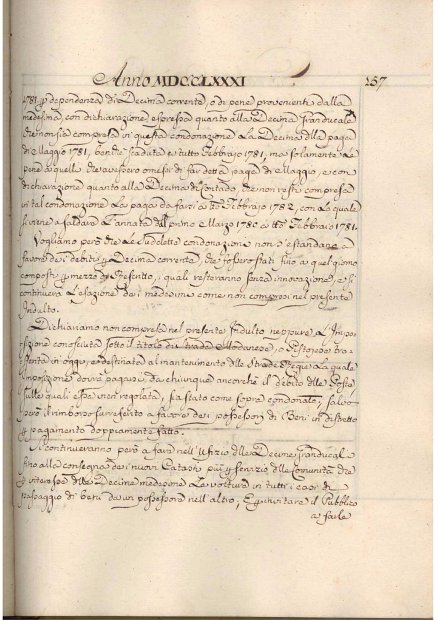 Anno MDCCLXXXI 157
1781 p dependenza di Decima corrente, o di pene provenienti dalla
medesima, con dichiarazione espressa quanto alla Decima Granducale
che non sia compresa in questa condonazione La Decima della paga
di Maggio 1781, benche scaduta a tutto Febbrajo 1781, ma solamente Le
pene di quelli che avessero omesso di far detta paga di Maggio, e con
dichiarazione quanto alla Decima di Contado, che non resti compresa
in tal condonazione La paga da farsi a tto Febbrajo 1782, con La quale
si viene a saldare L'annata dal primo Marzo 1780 a tto Febbrajo 1781.
Vogliamo però che Le suddette condonazioni non s'estendano a
favore dei debiti p Decima corrente, che fossero stati fino a quel giorno
composti p mezzo di Rescritto, i quali resteranno senza innovazione, e si
continuerà L'esazione dei medesimi come non compresi nel presente
Indulto.
Dichiariamo non compresa nel presente Indulto neppure L'Impo-
sizione conosciuta sotto il titolo di strada Modanese, o Pistojese
in oggi, e destinata al mantenimento delle Strade Regie La quale
imposizione dovrà pagarsi da chiunque ancorchè il debito delle Poste
sulle quali essa vien regolata, sia stato come sopra condonato, salvo
però il rimborso surriferito a favore dei possessori di Beni in distretto
p pagamento doppiamente fatto.
Si continueranno però a fare nell'Ufizio delle Decime Granducali
fino alla consegna dei nuovi Catasti più p servizio delle Comunità che
p interesse delle Decime medesime Le volture in tutti i casi di
passaggio di beni da un possessore nell'altro, E p invitare il Pubblico
a farle